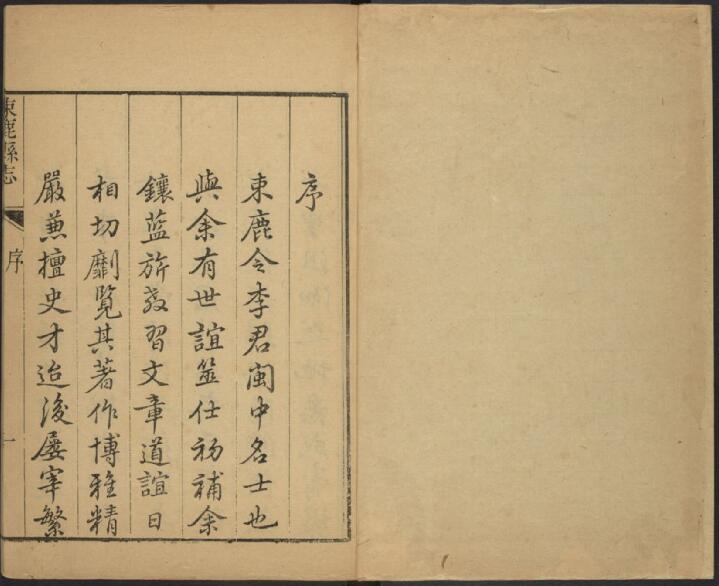 序
束鹿令李君閩中名士也
與余有世誼筮仕初補余
鑲藍旂教習文章道誼日
相切劘覧其著作博雅精
嚴兼擅史才迨後屡宰繁
束鹿縣志
序
一